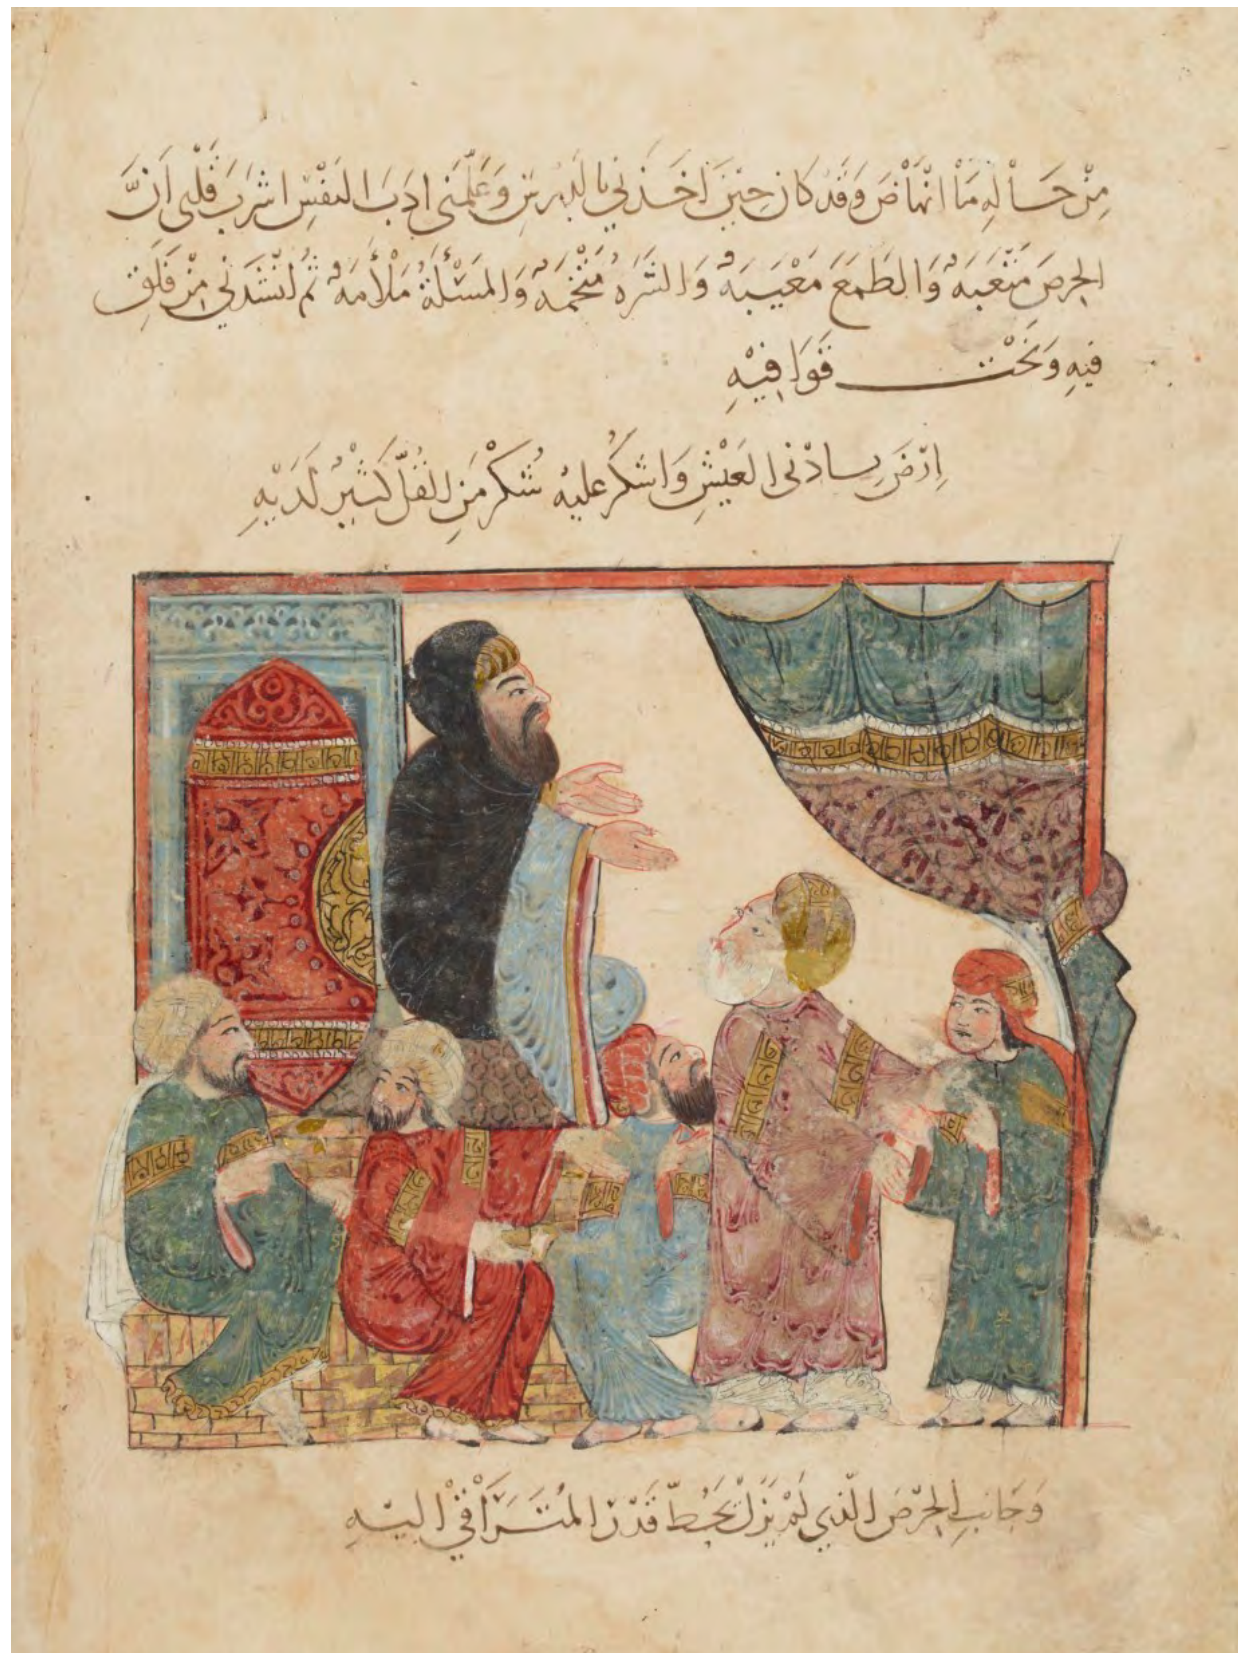 مِنْ حَالِهِ مَا انْهَاضَ وَقَد كَانَ حِيْنَ اَخَذَنِي بِالدَرسِ وَعَلَّمَنِي اَدَبَ النَفْسِ اشرَبَ قَلبِي اَنَّ
الحِرصَ مَتْعَبَه وَالطَمَعَ مَعْيَبَه وَالشَرَهَ مُتْخَمَه وَالمَسْئَلَةَ مَلْأَمَه ثُم اَنْشَدَنِي مِنْ فَلَقِ
فيهِ وَنَحْتِ قَوَافِيْهِ
اِرْضَ بِادْنى العَيْشِ وَاشكُر عَليه شُكْرَ مَنِ القُلّ كَثيْر لَدَيْهِ
وَجَانِبِ الحِرْصَ الّذي لَمْ يَزَلْ يَحُطّ قَدْرَ المُتَرَاقْي اليْهِ